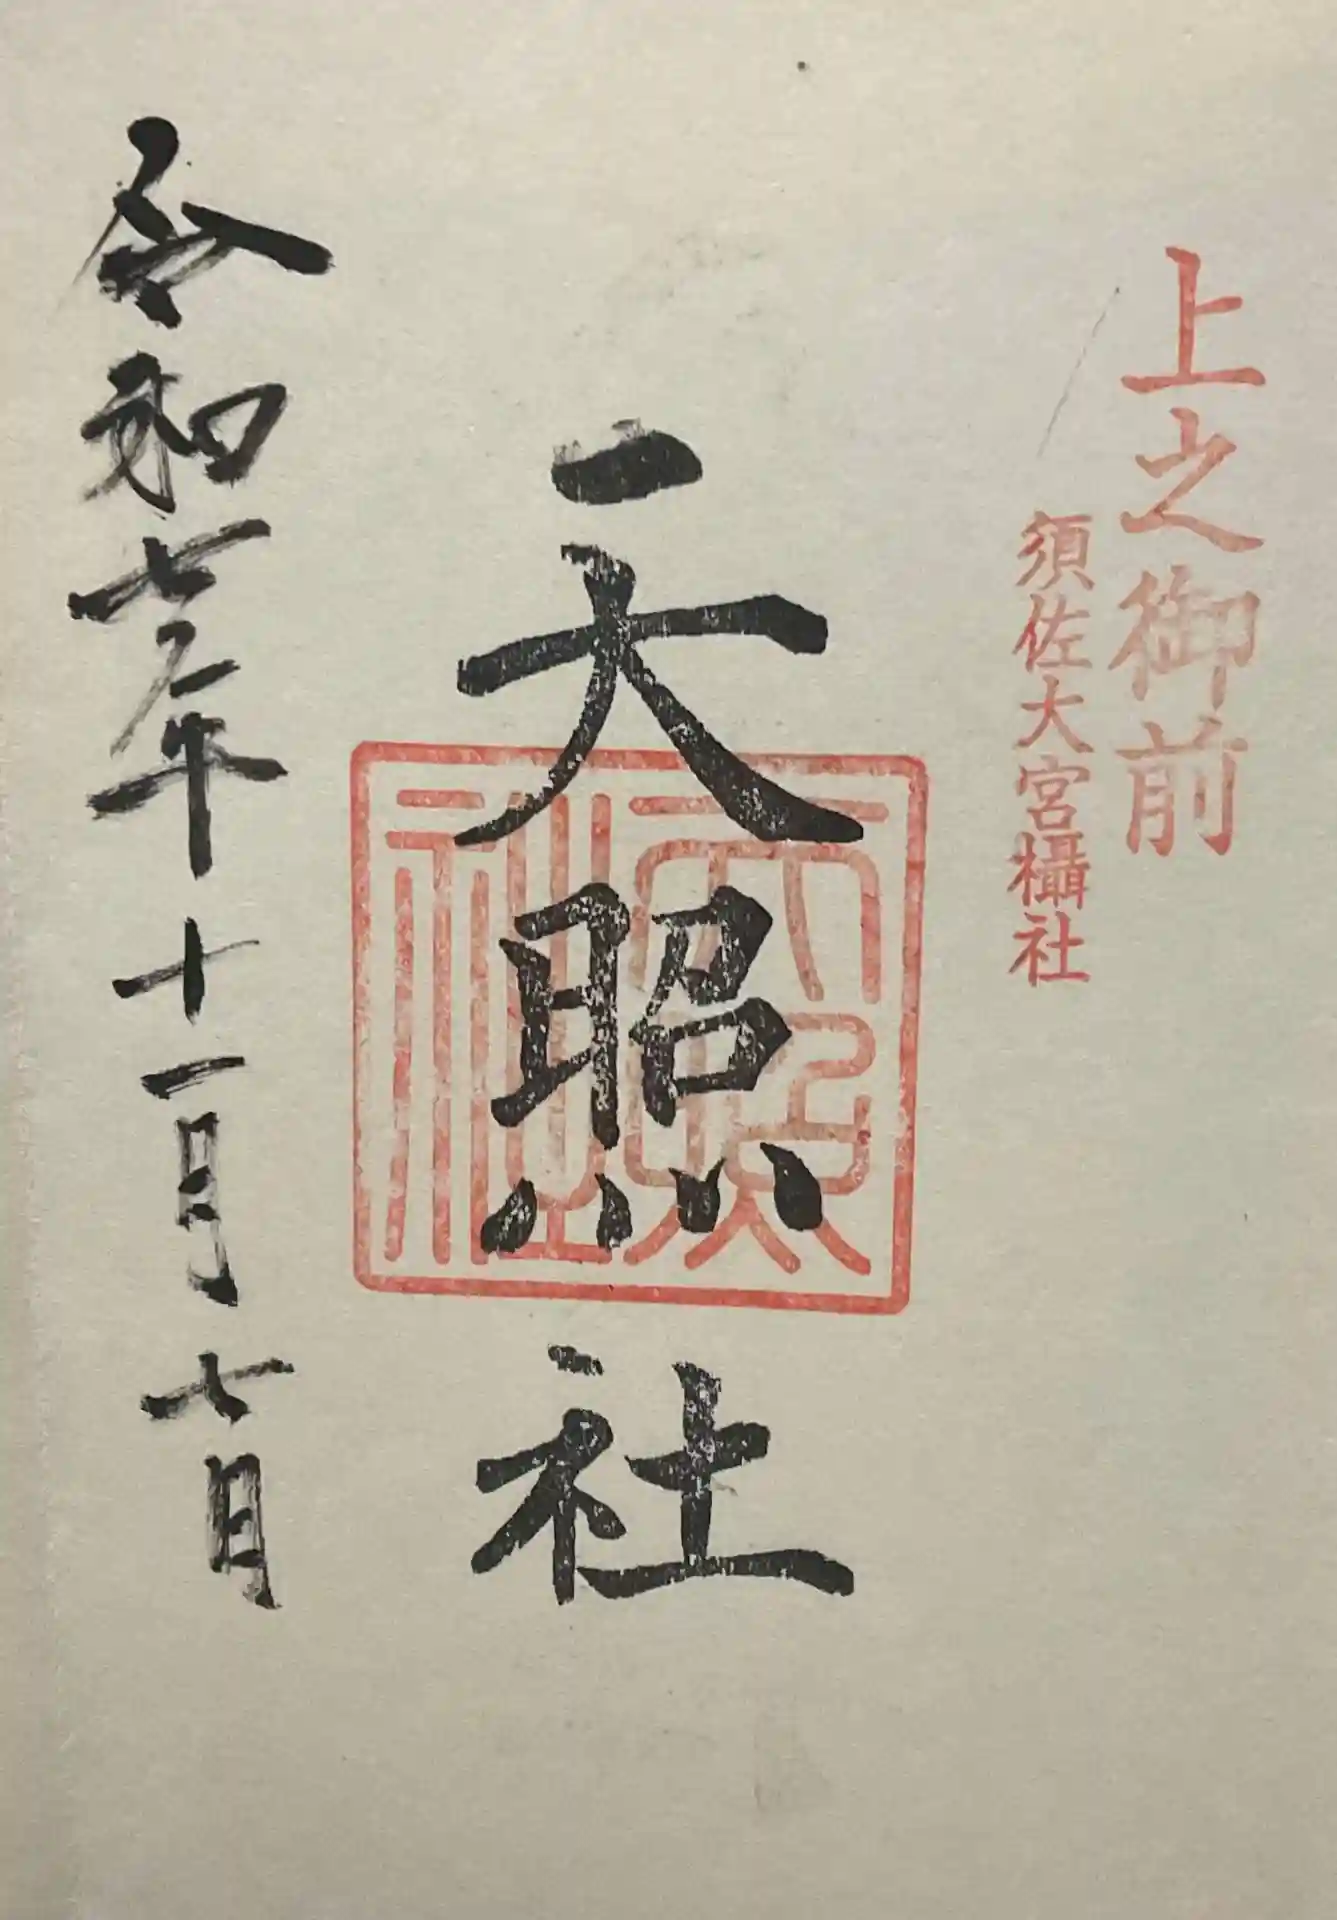 上之御前
須佐大宮攝社
天照社
天照社
令和七年十一月七日